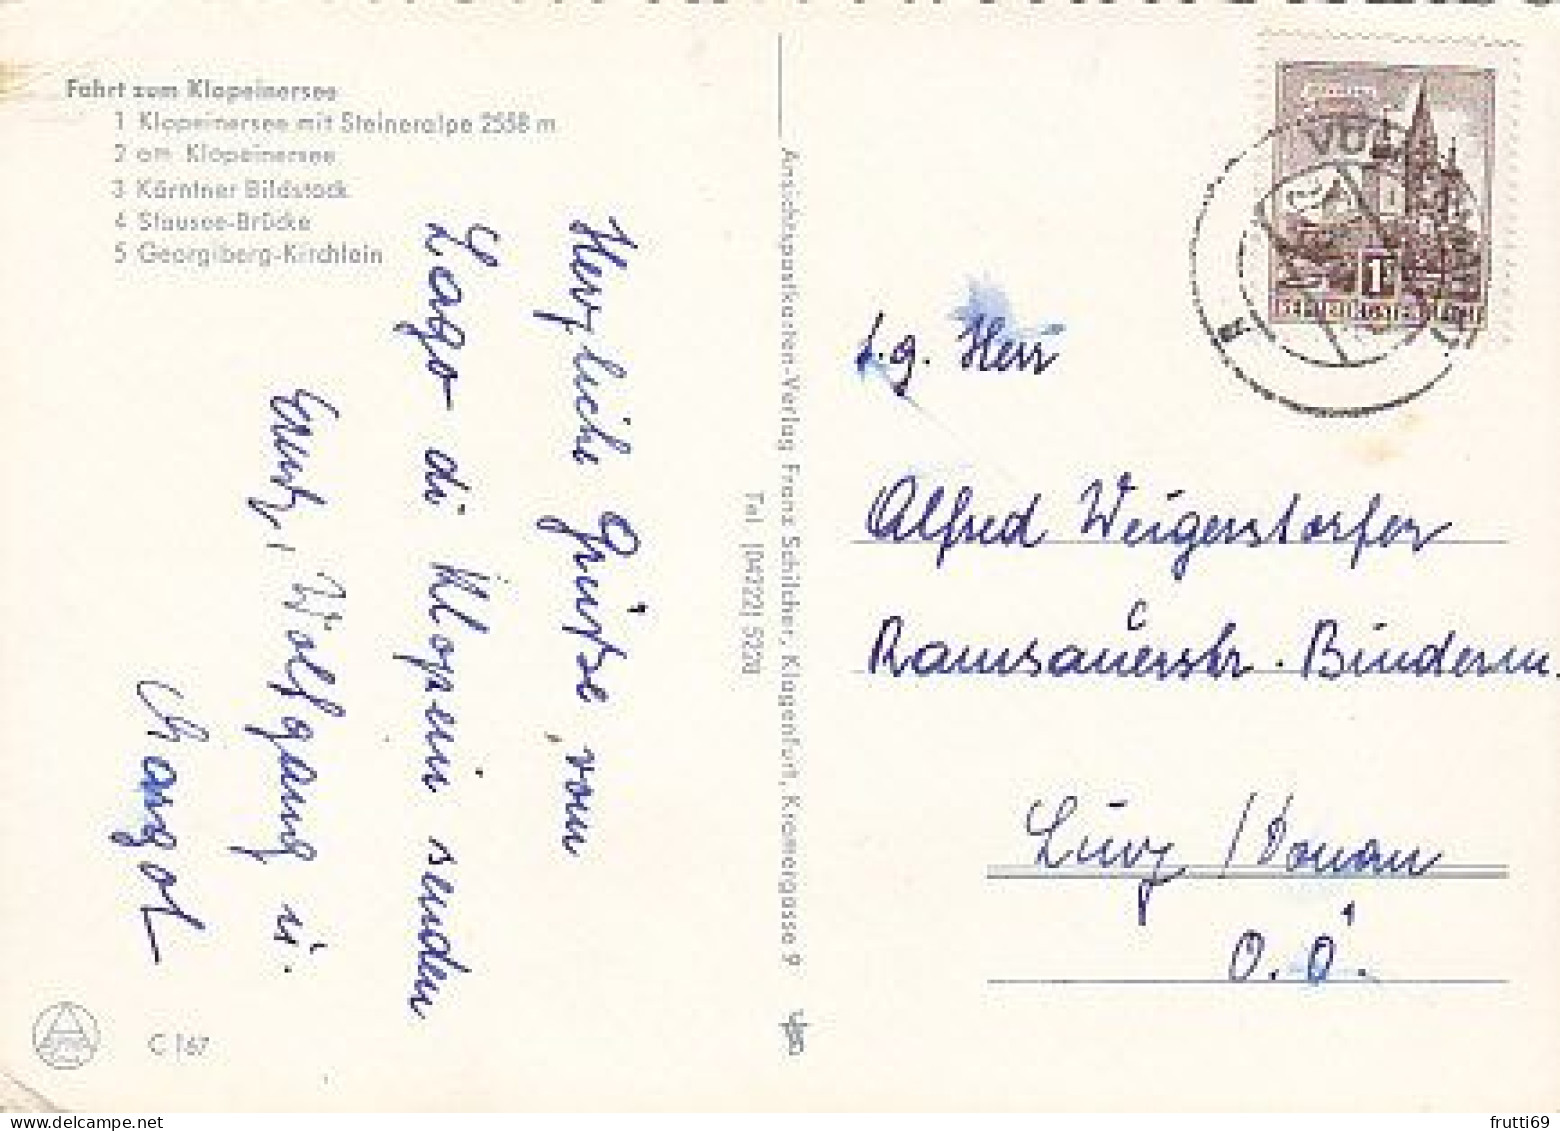 Fahrt zum Klopeinersee
1 Klopeinersee mit Steineralpe 2558 m
2 am Klopeinersee
3 Kärntner Bildstock
4 Stausee-Brücke
5 Georgiberg-Kirchlein
Herzliche Grüße vom
Lago di Klopein senden
Wolfgang u.
Margot
C 167
Ansichtspostkarten-Verlag Franz Schilcher, Klagenfurt, Kramergasse 9
Tel. (04222) 5228
1
Herr
Alfred Weigerstorfer
Ramsauerstr. Binderm.
Linz / Donau
O.Ö.
frutti69